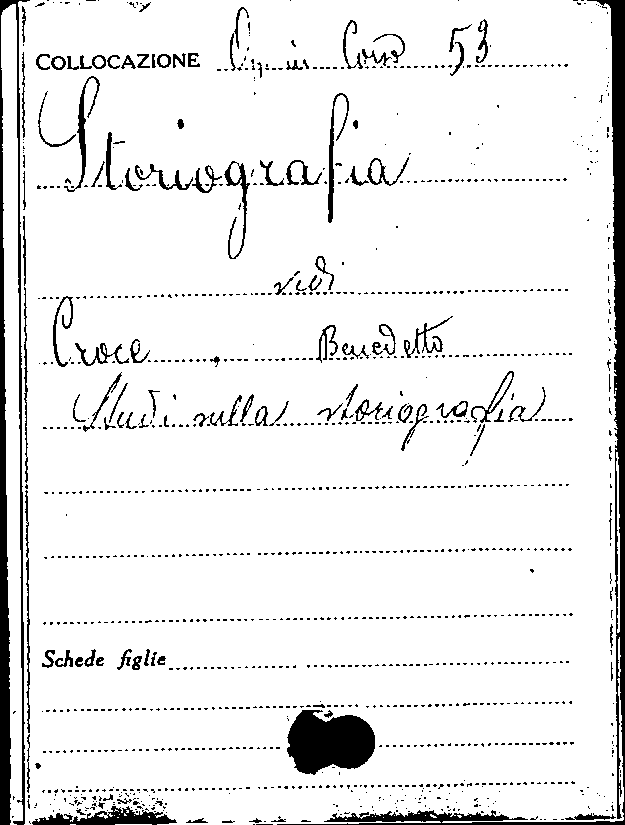 COLLOCAZIONE Op. in Corso 53
Storiografia
vedi
Croce, Benedetto
Studi sulla storiografia
Schede figlie